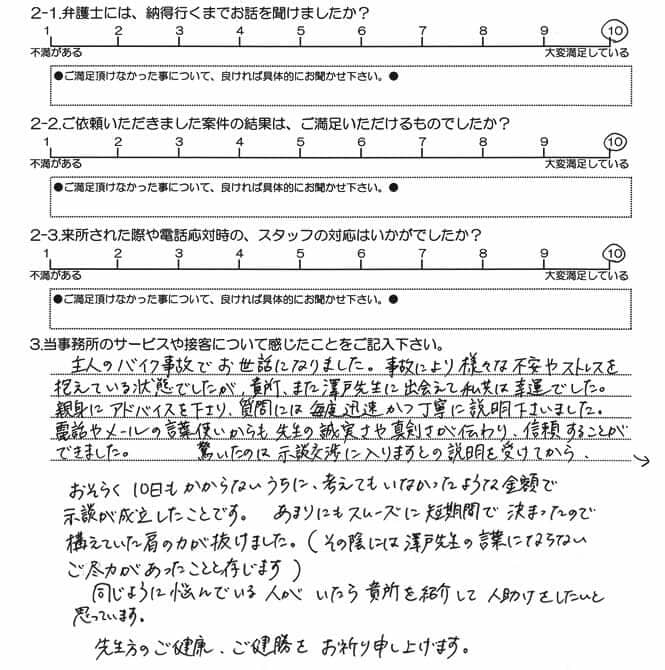 2-1.弁護士には、納得行くまでお話を聞けましたか？
1 2 3 4 5 6 7 8 9 10
不満がある 大変満足している
●ご満足頂けなかった事について、良ければ具体的にお聞かせ下さい。●
2-2.ご依頼いただきました案件の結果は、ご満足いただけるものでしたか？
1 2 3 4 5 6 7 8 9 10
不満がある 大変満足している
●ご満足頂けなかった事について、良ければ具体的にお聞かせ下さい。●
2-3.来所された際や電話応対時の、スタッフの対応はいかがでしたか？
1 2 3 4 5 6 7 8 9 10
不満がある 大変満足している
●ご満足頂けなかった事について、良ければ具体的にお聞かせ下さい。●
3.当事務所のサービスや接客について感じたことをご記入下さい。
主人のバイク事故でお世話になりました。事故により様々な不安やストレスを
抱えている状態でしたが、貴所、また澤戸先生に出会えて私共は幸運でした。
親身にアドバイスを下さり、質問には毎度迅速かつ丁寧に説明下さいました。
電話やメールの言葉使いからも先生の誠実さや真剣さが伝わり、信頼することが
できました。 驚いたのは示談交渉に入りますとの説明を受けてから、
おそらく10日もかからないうちに、考えてもいなかったような金額で
示談が成立したことです。 あまりにもスムーズに短期間で決まったので
構えていた肩の力が抜けました。（その陰には澤戸先生の言葉にならない
ご尽力があったことと存じます）
同じように悩んでいる人がいたら貴所を紹介して人助けをしたいと
思っています。
先生方のご健康、ご健勝をお祈り申し上げます。